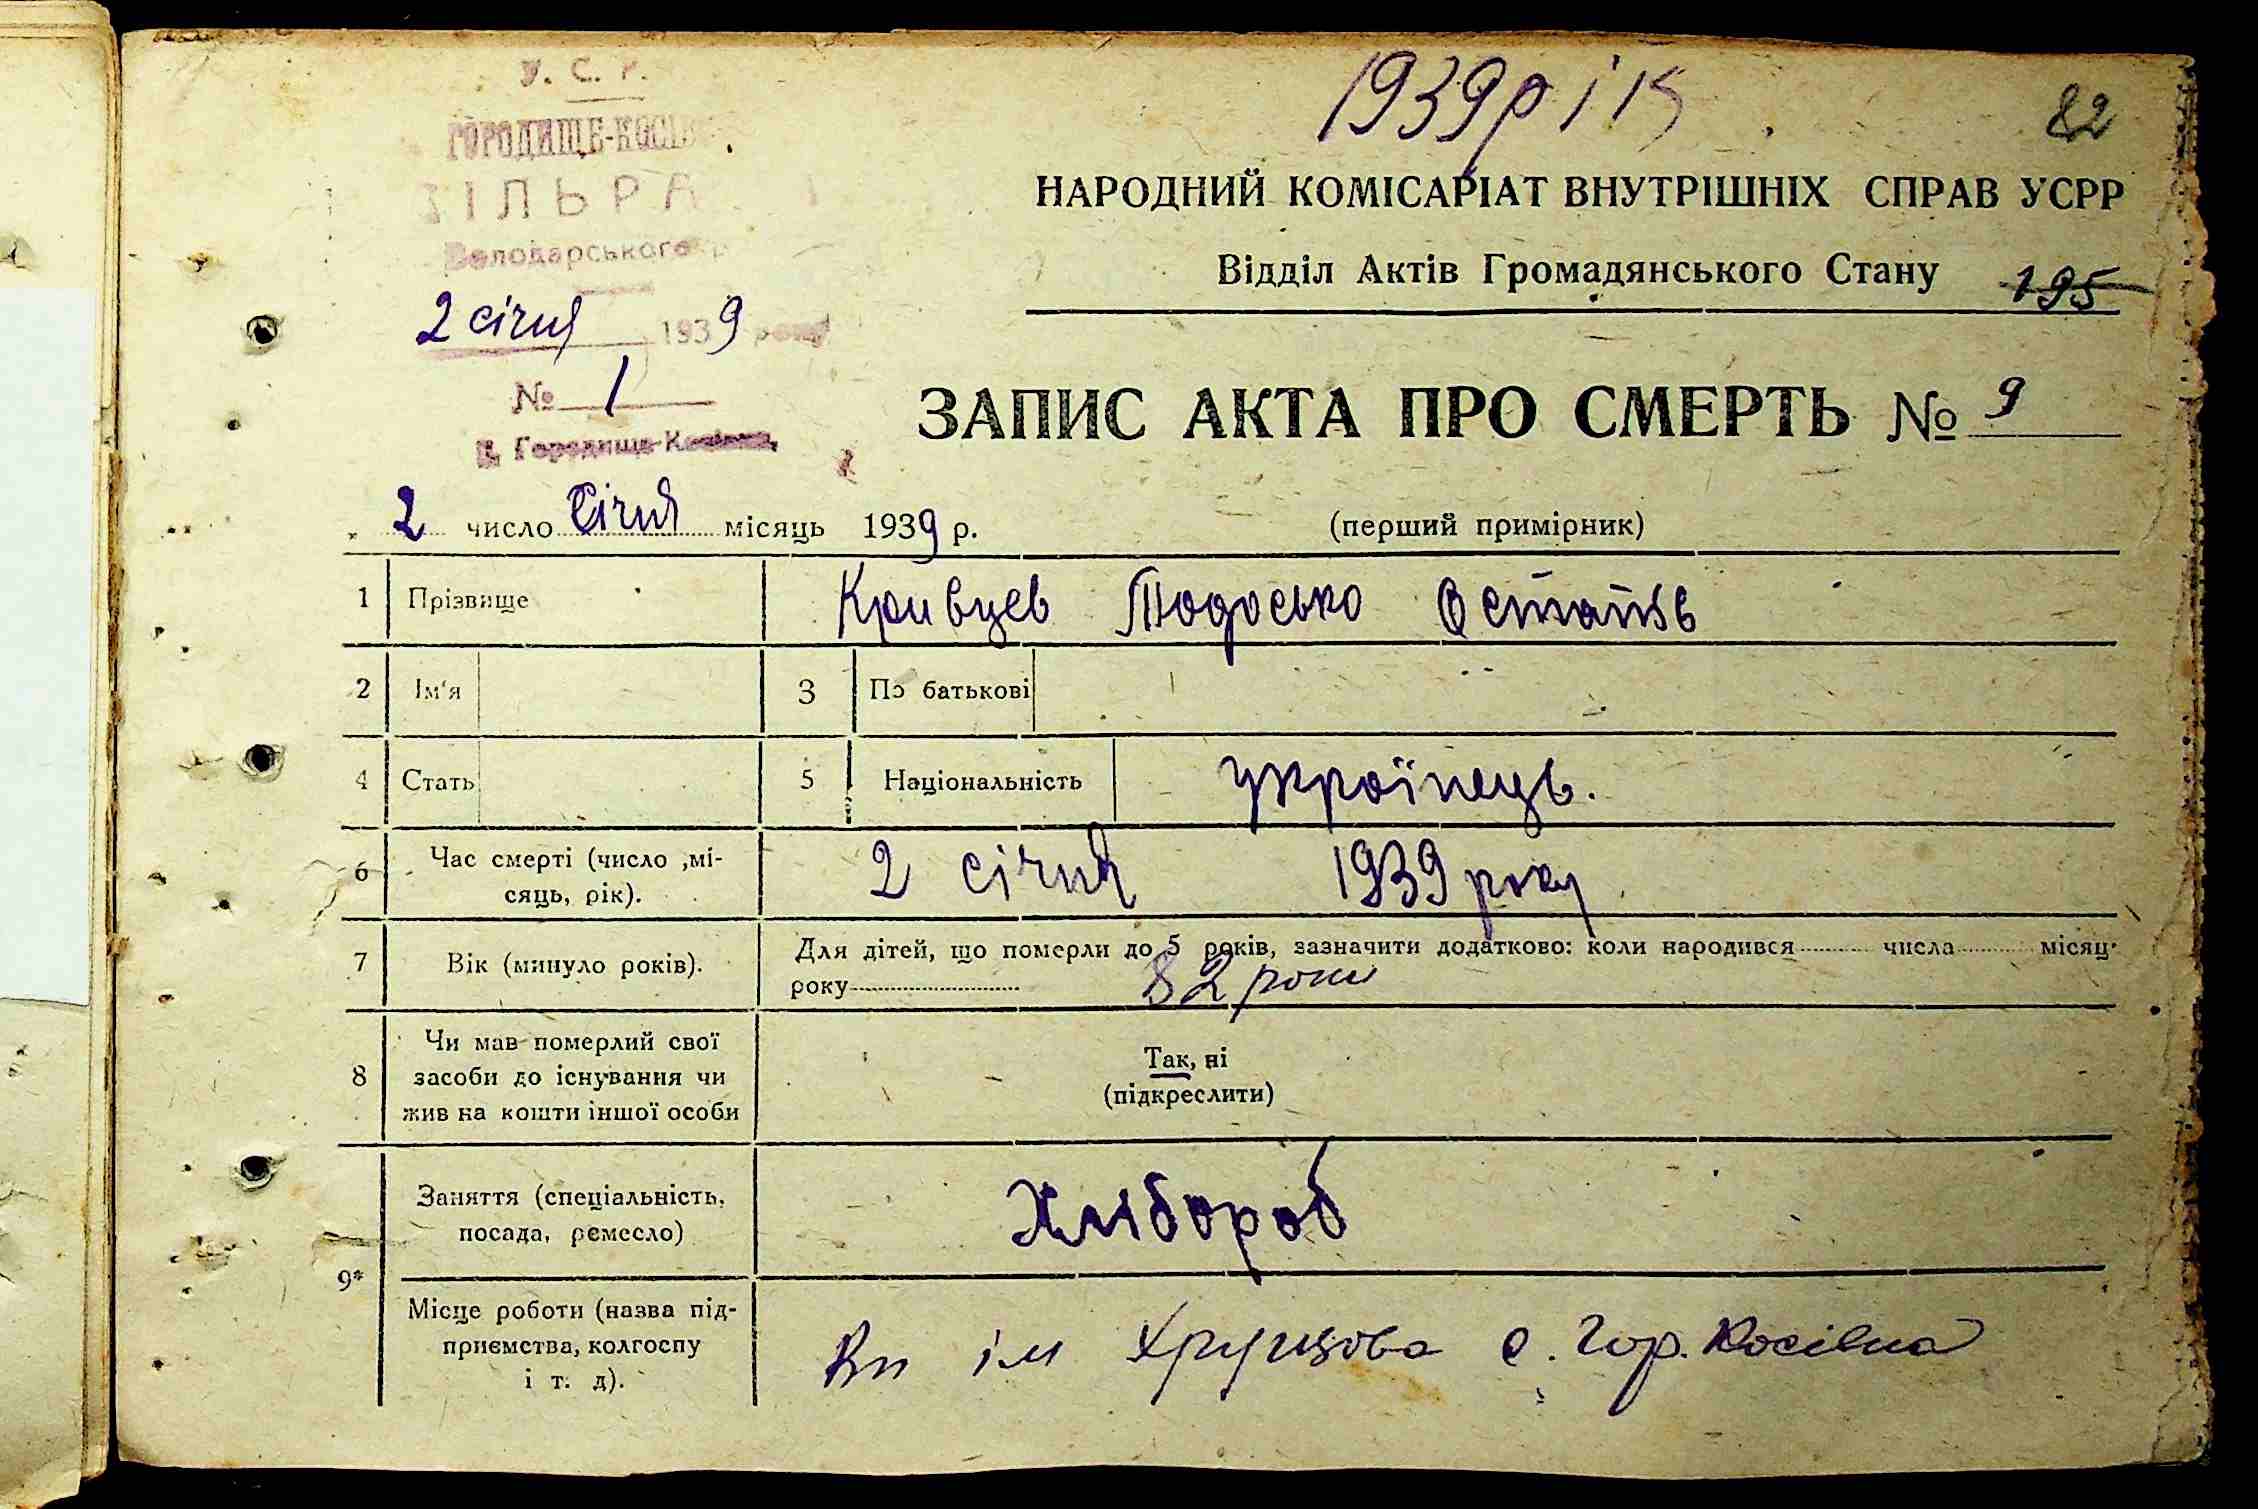 У. С. Р.
1939 рік
82
ГОРОДИЩЕ-КОСІВ
СІЛЬРА
НАРОДНИЙ КОМІСАРІАТ ВНУТРІШНІХ СПРАВ УСРР
Володарського р
Відділ Актів Громадянського Стану 195
2 січня 1939 року
ЗАПИС АКТА ПРО СМЕРТЬ № 9
№ 1
с. Городище-Косівка
2 число Січня місяць 1939 р. (перший примірник)
1 Прізвище Кривцев Тодосько Остапів
2 Ім'я 3 По батькові
4 Стать 5 Національність українець.
6 Час смерті (число ,мі-
сяць, рік). 2 січня 1939 року
7 Вік (минуло років). Для дітей, що померли до 5 років, зазначити додатково: коли народився числа місяц
року 82 роки
8 Чи мав померлий свої
засоби до існування чи
жив на кошти іншої особи
Так, ні
(підкреслити)
9* Заняття (спеціальність,
посада, ремесло) Хлібороб
Місце роботи (назва під-
приємства, колгоспу
і т. д).
ім Хрущова с. Гор. Косівка